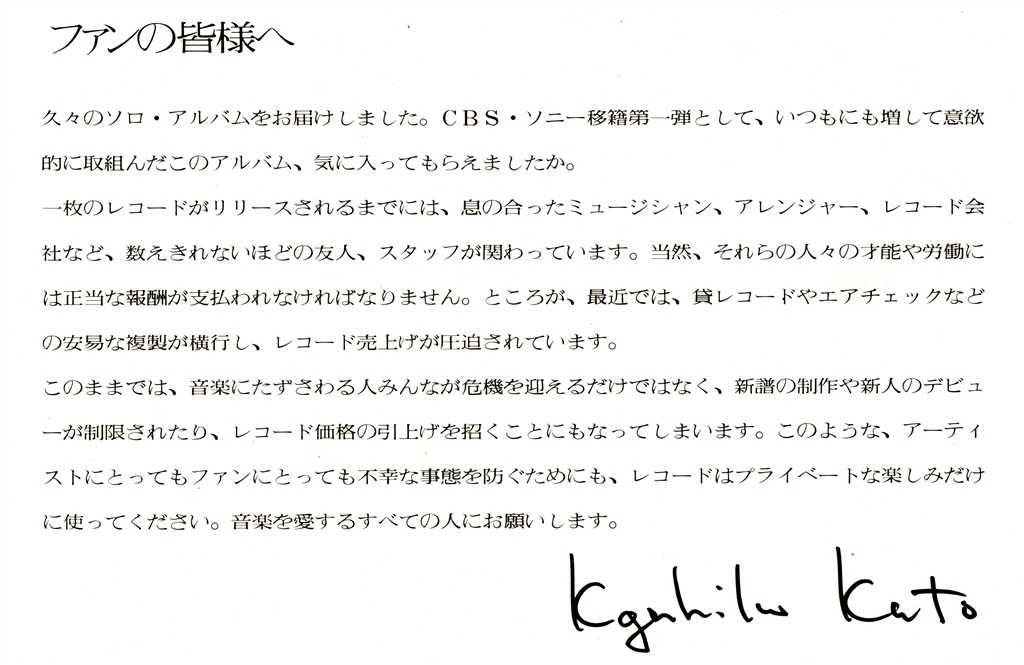 ファンの皆様へ
久々のソロ・アルバムをお届けしました。ＣＢＳ・ソニー移籍第一弾として、いつもにも増して意欲
的に取組んだこのアルバム、気に入ってもらえましたか。
一枚のレコードがリリースされるまでには、息の合ったミュージシャン、アレンジャー、レコード会
社など、数えきれないほどの友人、スタッフが関わっています。当然、それらの人々の才能や労働に
は正当な報酬が支払われなければなりません。ところが、最近では、貸レコードやエアチェックなど
の安易な複製が横行し、レコード売上げが圧迫されています。
このままでは、音楽にたずさわる人みんなが危機を迎えるだけではなく、新譜の制作や新人のデビュ
ーが制限されたり、レコード価格の引上げを招くことにもなってしまいます。このような、アーティ
ストにとってもファンにとっても不幸な事態を防ぐためにも、レコードはプライベートな楽しみだけ
に使ってください。音楽を愛するすべての人にお願いします。
Kazuhiko Kato